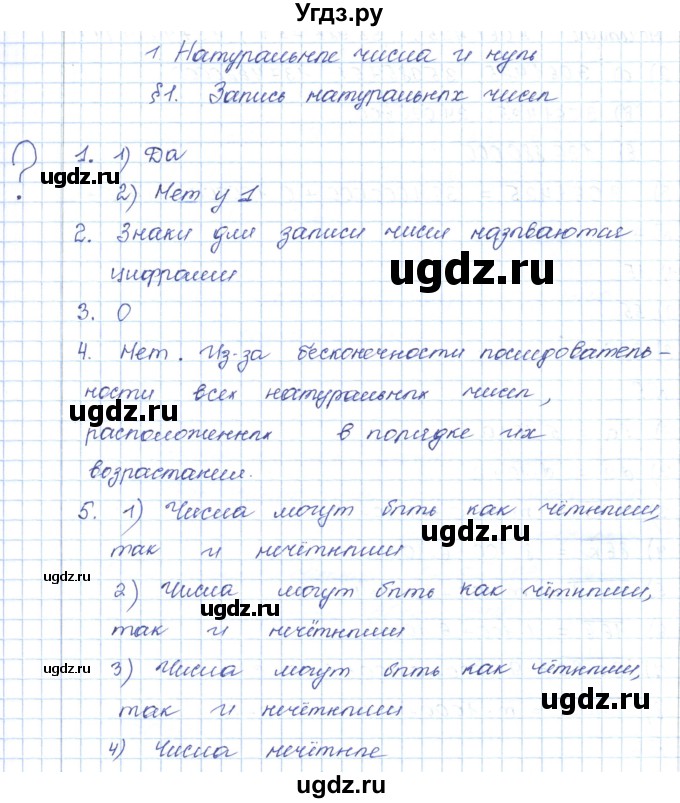 Угдз.ру
1 Натуральные числа и нуль
§1. Запись натуральных чисел
? 1. 1) Да
ugdz.ru
2) Нет у 1
2. Знаки для записи чисел называются
ugdz.ru
цифрами
3. 0
4. Нет. Из-за бесконечности последователь-
ности всех натуральных чисел,
ugdz.ru
расположенных в порядке их
возрастания.
5. 1) Числа могут быть как чётными,
ugdz.ru
так и нечётными
ugdz.ru
2) Числа могут быть как чётными,
ugdz.ru
так и нечётными
3) Числа могут быть как чётными,
ugdz.ru
ugdz.ru
так и нечётными
4) Числа нечётные
ugdz.ru